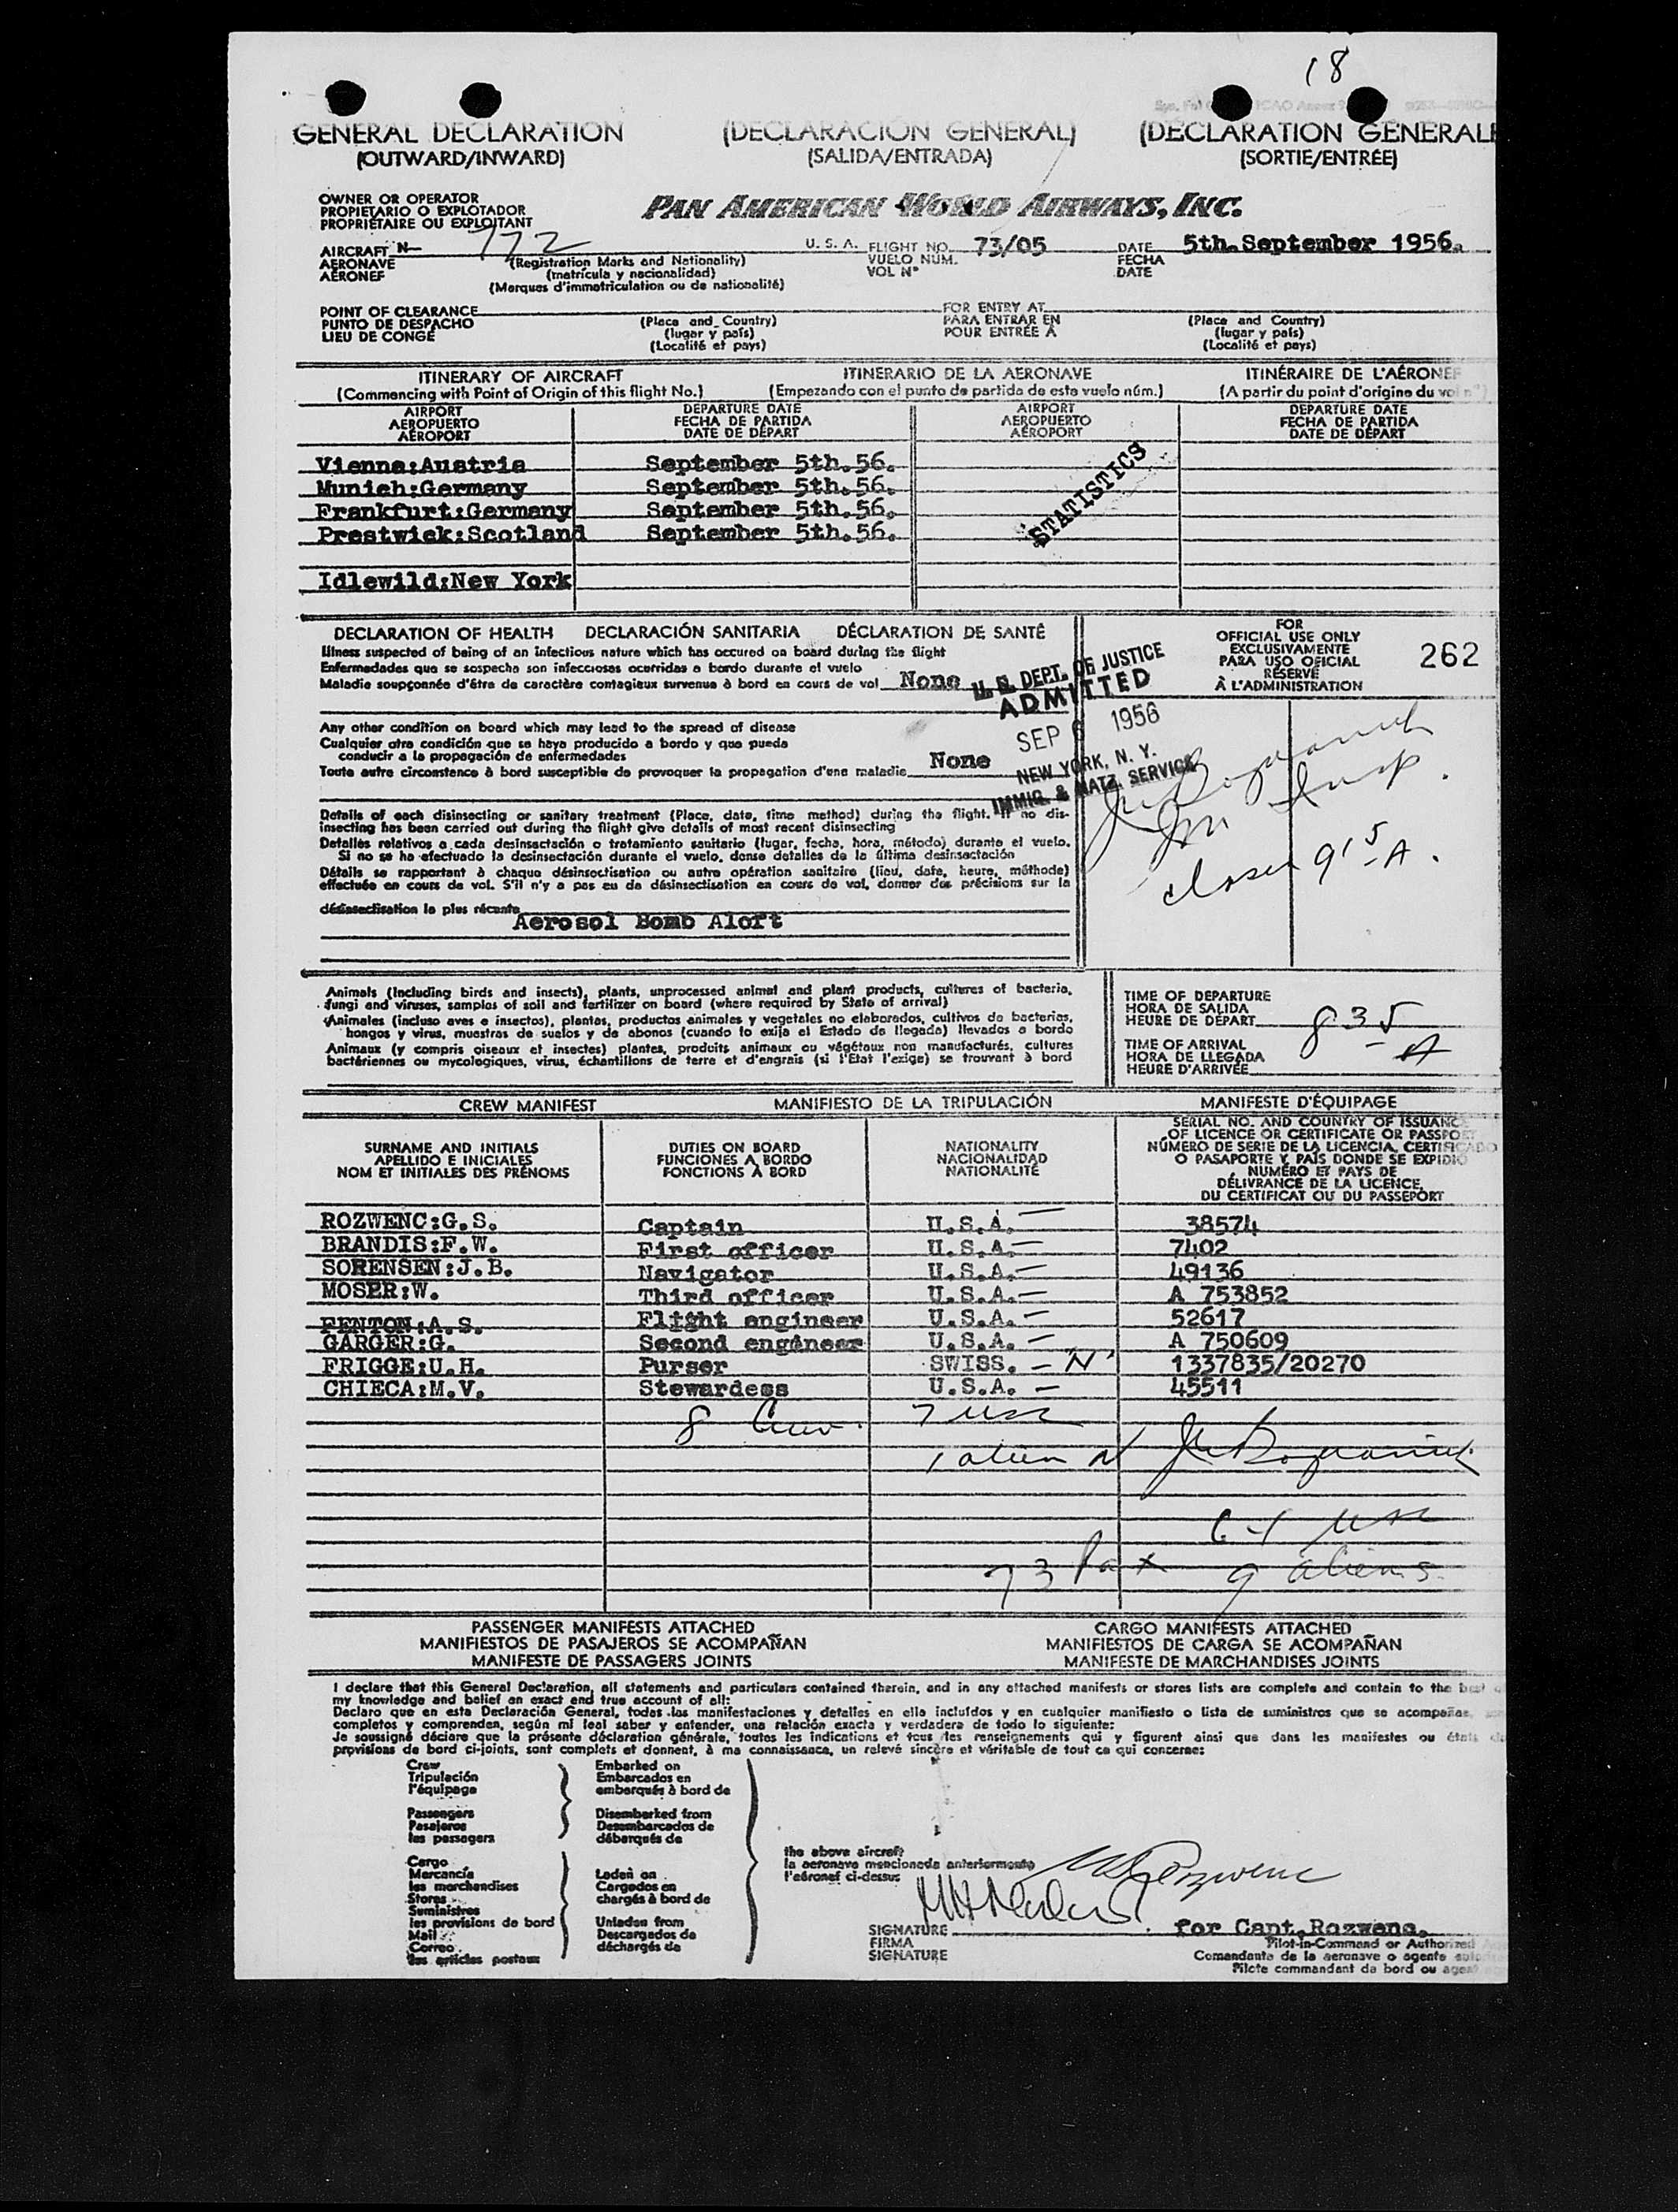 18
GENERAL DECLARATION (DECLARACIÓN GENERAL) (DÉCLARATION GÉNÉRALE
(OUTWARD/INWARD) (SALIDA/ENTRADA) (SORTIE/ENTRÉE)
OWNER OR OPERATOR
PROPIETARIO O EXPLOTADOR
PROPRIÉTAIRE OU EXPLOITANT
PAN AMERICAN WORLD AIRWAYS, INC.
AIRCRAFT N- 772 U. S. A. FLIGHT NO. 73/05 DATE 5th.September 1956.
AERONAVE (Registration Marks and Nationality) VUELO NÚM. FECHA
AÉRONEF (matrícula y nacionalidad) VOL Nº DATE
(Marques d'immatriculation ou de nationalité)
POINT OF CLEARANCE FOR ENTRY AT
PUNTO DE DESPACHO (Place and Country) PARA ENTRAR EN (Place and Country)
LIEU DE CONGÉ (lugar y país) POUR ENTRÉE À (lugar y país)
(Localité et pays) (Localité et pays)
ITINERARY OF AIRCRAFT ITINERARIO DE LA AERONAVE ITINÉRAIRE DE L'AÉRONEF
(Commencing with Point of Origin of this flight No.) (Empezando con el punto de partida de este vuelo núm.) (A partir du point d'origine du vol n°)
AIRPORT DEPARTURE DATE AIRPORT DEPARTURE DATE
AEROPUERTO FECHA DE PARTIDA AEROPUERTO FECHA DE PARTIDA
AÉROPORT DATE DE DÉPART AÉROPORT DATE DE DÉPART
Vienna:Austria September 5th.56.
Munich:Germany September 5th.56.
Frankfurt:Germany September 5th.56.
Prestwick:Scotland September 5th.56.
STATISTICS
Idlewild:New York
DECLARATION OF HEALTH DECLARACIÓN SANITARIA DÉCLARATION DE SANTÉ
Illness suspected of being of an infectious nature which has occured on board during the flight
Enfermedades que se sospecha son infecciosas ocurridas a bordo durante el vuelo
Maladie soupçonnée d'être de caractère contagieux survenue à bord en cours de vol None
FOR
OFFICIAL USE ONLY
EXCLUSIVAMENTE
PARA USO OFICIAL
RÉSERVÉ
À L'ADMINISTRATION
262
U. S. DEPT. OF JUSTICE
ADMITTED
SEP 6 1956
NEW YORK, N. Y.
IMMIG. & NATZ. SERVICE
Any other condition on board which may lead to the spread of disease
Cualquier otra condición que se haya producido a bordo y que pueda
conducir a la propagación de enfermedades
Toute autre circonstance à bord susceptible de provoquer la propagation d'une maladie None
Imm Insp.
closed 9 15 A.
Details of each disinsecting or sanitary treatment (Place, date, time method) during the flight. If no dis-
insecting has been carried out during the flight give details of most recent disinsecting
Detalles relativos a cada desinsactación o tratamiento sanitario (lugar, fecha, hora, método) durante el vuelo.
Si no se ha efectuado la desinsectación durante el vuelo, dense detalles de la última desinsectación
Détails se rapportant à chaque désinsectisation ou autre opération sanitaire (lieu, date, heure, méthode)
effectuée en cours de vol. S'il n'y a pas eu de désinsectisation en cours de vol, donner des précisions sur la
désinsectisation la plus récente
Aerosol Bomb Aloft
Animals (Including birds and insects), plants, unprocessed animal and plant products, cultures of bacteria,
fungi and viruses, samples of soil and fertilizer on board (where required by State of arrival)
Animales (incluso aves e insectos), plantas, productos animales y vegetales no elaborados, cultivos de bacterias,
hongos y virus, muestras de suelos y de abonos (cuando lo exija el Estado de llegada) llevados a bordo
Animaux (y compris oiseaux et insectes) plantes, produits animaux ou végétaux non manufacturés, cultures
bactériennes ou mycologiques, virus, échantillons de terre et d'engrais (si l'Etat l'exige) se trouvant à bord
TIME OF DEPARTURE
HORA DE SALIDA
HEURE DE DÉPART
8 35 A
TIME OF ARRIVAL
HORA DE LLEGADA
HEURE D'ARRIVÉE
CREW MANIFEST MANIFIESTO DE LA TRIPULACIÓN MANIFESTE D'ÉQUIPAGE
SURNAME AND INITIALS DUTIES ON BOARD NATIONALITY
APELLIDO E INICIALES FUNCIONES A BORDO NACIONALIDAD
NOM ET INITIALES DES PRÉNOMS FONCTIONS À BORD NATIONALITÉ
SERIAL NO. AND COUNTRY OF ISSUANCE
OF LICENCE OR CERTIFICATE OR PASSPORT
NÚMERO DE SERIE DE LA LICENCIA, CERTIFICADO
O PASAPORTE Y PAÍS DONDE SE EXPIDIÓ
NUMÉRO ET PAYS DE
DÉLIVRANCE DE LA LICENCE,
DU CERTIFICAT OU DU PASSEPORT
ROZWENC:G.S. Captain U.S.A. — 38574
BRANDIS:F.W. First officer U.S.A. — 7402
SORENSEN:J.B. Navigator U.S.A. — 49136
MOSER:W. Third officer U.S.A. — A 753852
FENTON:A.S. Flight engineer U.S.A. — 52617
GARGER:G. Second engineer U.S.A. — A 750609
FRIGGE:U.H. Purser SWISS. — "N" 1337835/20270
CHIECA:M.V. Stewardess U.S.A. — 45511
8 Crew. 7 USC
1 alien N
64 USC
73 Pax 9 aliens
PASSENGER MANIFESTS ATTACHED CARGO MANIFESTS ATTACHED
MANIFIESTOS DE PASAJEROS SE ACOMPAÑAN MANIFIESTOS DE CARGA SE ACOMPAÑAN
MANIFESTE DE PASSAGERS JOINTS MANIFESTE DE MARCHANDISES JOINTS
I declare that this General Declaration, all statements and particulars contained therein, and in any attached manifests or stores lists are complete and contain to the best
my knowledge and belief an exact and true account of all:
Declaro que en esta Declaración General, todas las manifestaciones y detalles en ella incluídos y en cualquier manifiesto o lista de suministros que se acompañas,
completos y comprenden, según mi leal saber y entender, una relación exacta y verdadera de todo lo siguiente:
Je soussigné déclare que la présente déclaration générale, toutes les indications et tous les renseignements qui y figurent ainsi que dans les manifestes ou états
provisions de bord ci-joints, sont complets et donnent, à ma connaissance, un relevé sincère et véritable de tout ce qui concerne:
Crew Embarked on
Tripulación Embarcados en
l'équipage embarqués à bord de
Passengers Disembarked from
Pasajeros Desembarcados de
les passagers débarqués de
the above aircraft
la aeronave mencionada anteriormente
l'aéronef ci-dessus
Cargo
Mercancía Laden on
les marchandises Cargados en
Stores chargés à bord de
Suministros
les provisions de bord Unladen from
Mail Descargados de
Correo déchargés de
les articles postaux
SIGNATURE for Capt.Rozwenc.
FIRMA Pilot-in-Command or Authorized
SIGNATURE Comandante de la aeronave o agente
Pilote commandant de bord ou agent